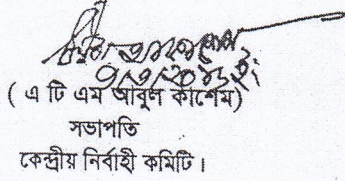 ( এ টি এম আবুল কাশেম)
সভাপতি
কেন্দ্রীয় নির্বাহী কমিটি।